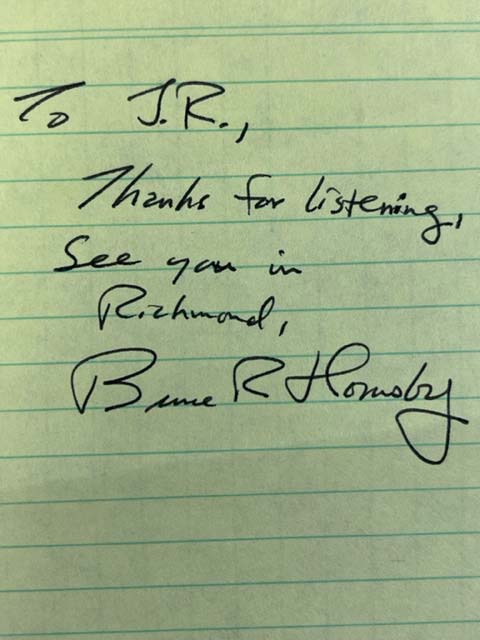 To J.R.,
Thanks for listening,
See you in
Richmond,
Bruce R Hornsby